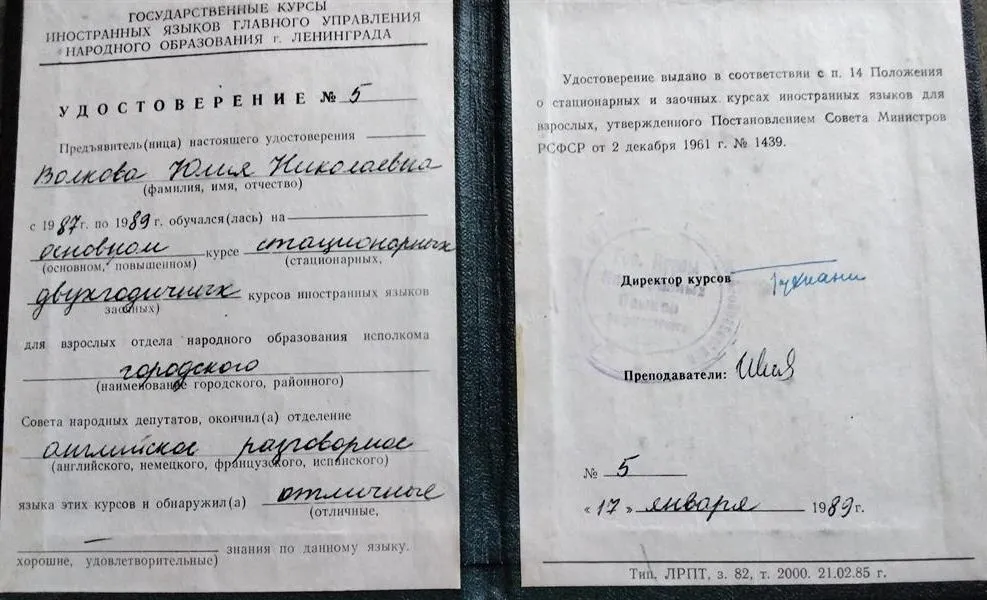 ГОСУДАРСТВЕННЫЕ КУРСЫ
ИНОСТРАННЫХ ЯЗЫКОВ ГЛАВНОГО УПРАВЛЕНИЯ
НАРОДНОГО ОБРАЗОВАНИЯ г. ЛЕНИНГРАДА
УДОСТОВЕРЕНИЕ № 5
Предъявитель(ница) настоящего удостоверения
Волкова Юлия Николаевна
(фамилия, имя, отчество)
с 1987 г. по 1989 г. обучался(лась) на
основном курсе стационарных
(основном, повышенном) (стационарных,
двухгодичных курсов иностранных языков
заочных)
для взрослых отдела народного образования исполкома
городского
(наименование городского, районного)
Совета народных депутатов, окончил(а) отделение
английское разговорное
(английского, немецкого, французского, испанского)
языка этих курсов и обнаружил(а) отличные
(отличные,
— знания по данному языку.
хорошие, удовлетворительные)
Удостоверение выдано в соответствии с п. 14 Положения
о стационарных и заочных курсах иностранных языков для
взрослых, утвержденного Постановлением Совета Министров
РСФСР от 2 декабря 1961 г. № 1439.
Директор курсов
Преподаватели:
№ 5
«17» января 1989 г.
Тип. ЛРПТ, з. 82, т. 2000. 21.02.85 г.